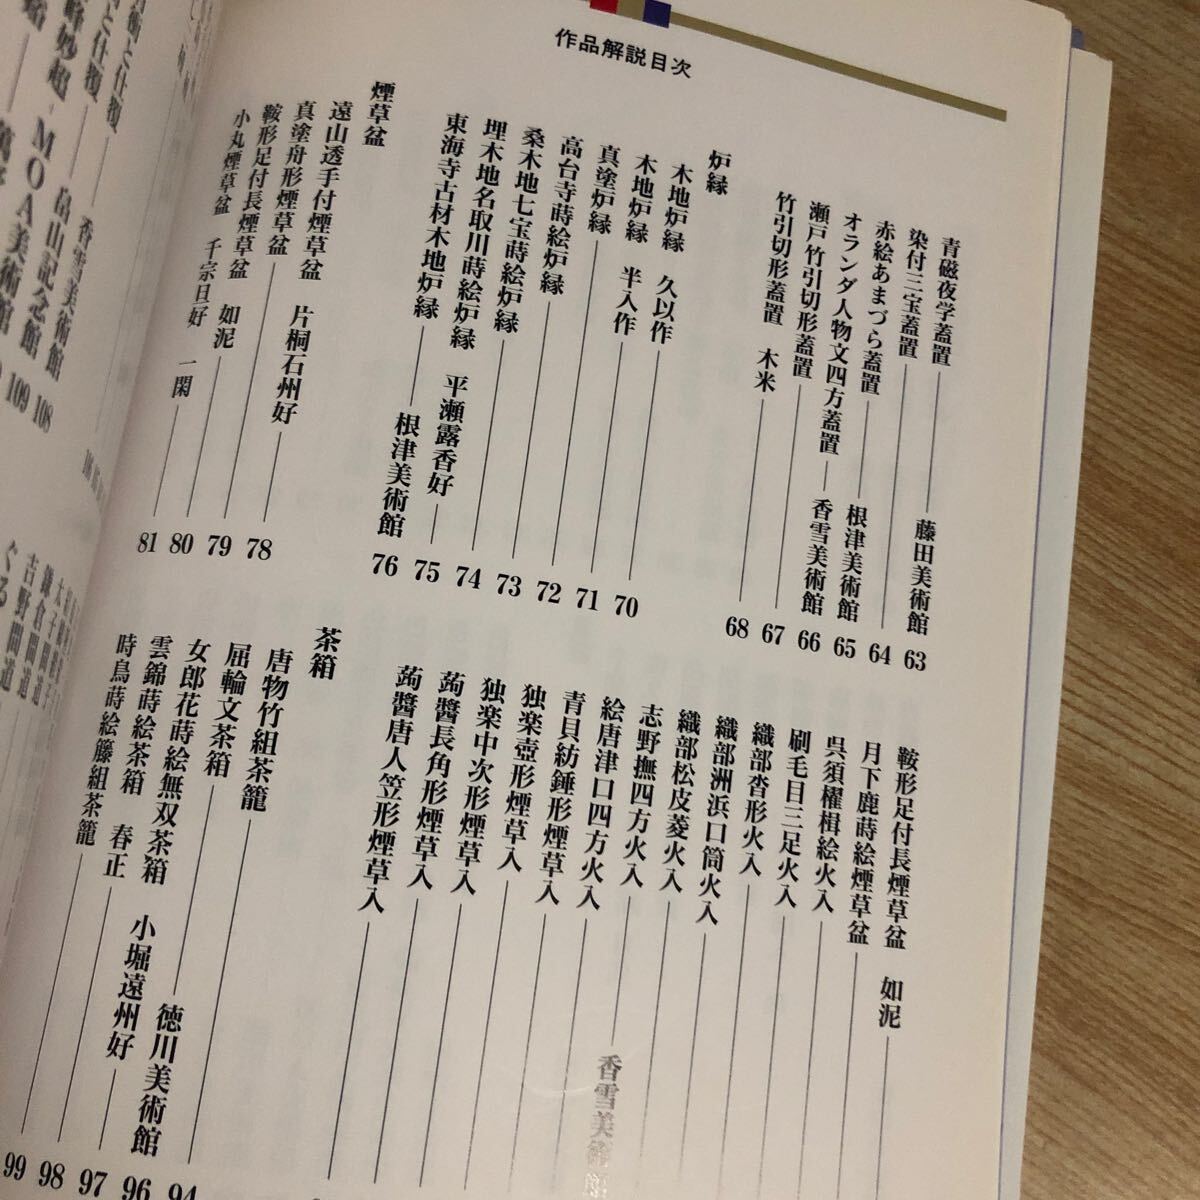 作品解説目次
青磁夜学蓋置 藤田美術館 63
染付三宝蓋置 64
赤絵あまづら蓋置 根津美術館 65
オランダ人物文四方蓋置 香雪美術館 66
瀬戸竹引切形蓋置 67
竹引切形蓋置 木米 68
炉縁
木地炉縁 久以作 70
木地炉縁 半入作 71
真塗炉縁 72
高台寺蒔絵炉縁 73
桑木地七宝蒔絵炉縁 74
埋木地名取川蒔絵炉縁 平瀬露香好 75
東海寺古材木地炉縁 根津美術館 76
煙草盆
遠山透手付煙草盆 片桐石州好 78
真塗舟形煙草盆 79
鞍形足付長煙草盆 如泥 80
小丸煙草盆 千宗旦好 一閑 81
鞍形足付長煙草盆 如泥
月下鹿蒔絵煙草盆
呉須櫂楫絵火入
刷毛目三足火入
織部沓形火入
織部洲浜口筒火入
織部松皮菱火入
志野撫四方火入 香雪美術館
絵唐津口四方火入
青貝紡錘形煙草入
独楽壺形煙草入
独楽中次形煙草入
蒟醬長角形煙草入
蒟醬唐人笠形煙草入
茶箱
唐物竹組茶籠 94
屈輪文茶箱 徳川美術館 96
女郎花蒔絵無双茶箱 小堀遠州好 97
雲錦蒔絵茶箱 春正 98
時鳥蒔絵籐組茶籠 99
と仕覆 香雪美術館
と仕覆 畠山記念館 108
峰妙超 MOA美術館 109
太子間道
鎌倉間道
吉野間道
ぐる